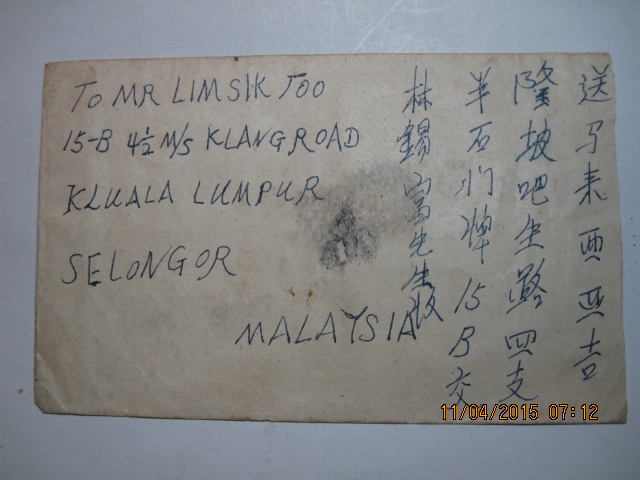 TO MR LIM SIK FOO
15-B 4½ M/S KLANG ROAD
KLUALA LUMPUR
SELONGOR
MALAYSIA
送马来西亚吉
隆坡吧生路四支
半石门牌15B交
林錫富先生收
11/04/2015 07:12